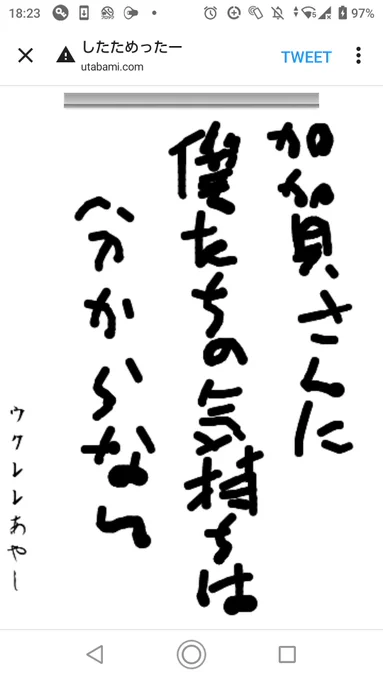 18:23
97%
したためったー
utabami.com
TWEET
加賀さんに
僕たちの気持ちは
分からない
ウクレレあやー